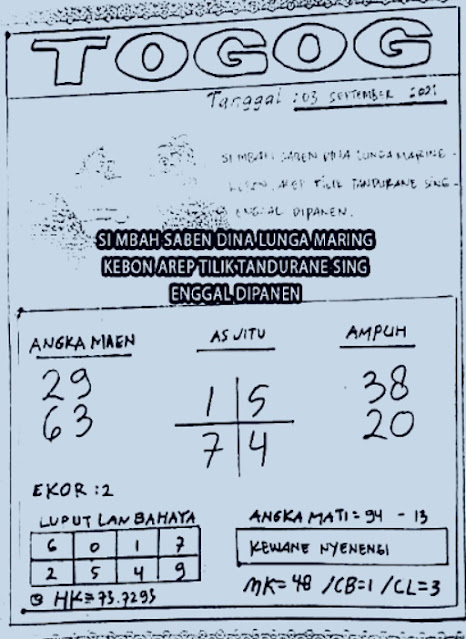 TOGOG
Tanggal : 03 SEPTEMBER 2021
SI MBAH SABEN DINA LUNGA MARING
KEBON AREP TILIK TANDURANE SING
ENGGAL DIPANEN.
SI MBAH SABEN DINA LUNGA MARING
KEBON AREP TILIK TANDURANE SING
ENGGAL DIPANEN
ANGKA MAEN
29
63
AS JITU
1 5
7 4
AMPUH
38
20
EKOR : 2
LUPUT LAN BAHAYA
6 0 1 7
2 5 4 9
HK = 73.7293
ANGKA MATI = 94 - 13
KEWANE NYENENGI
MK = 48 / CB = 1 / CL = 3